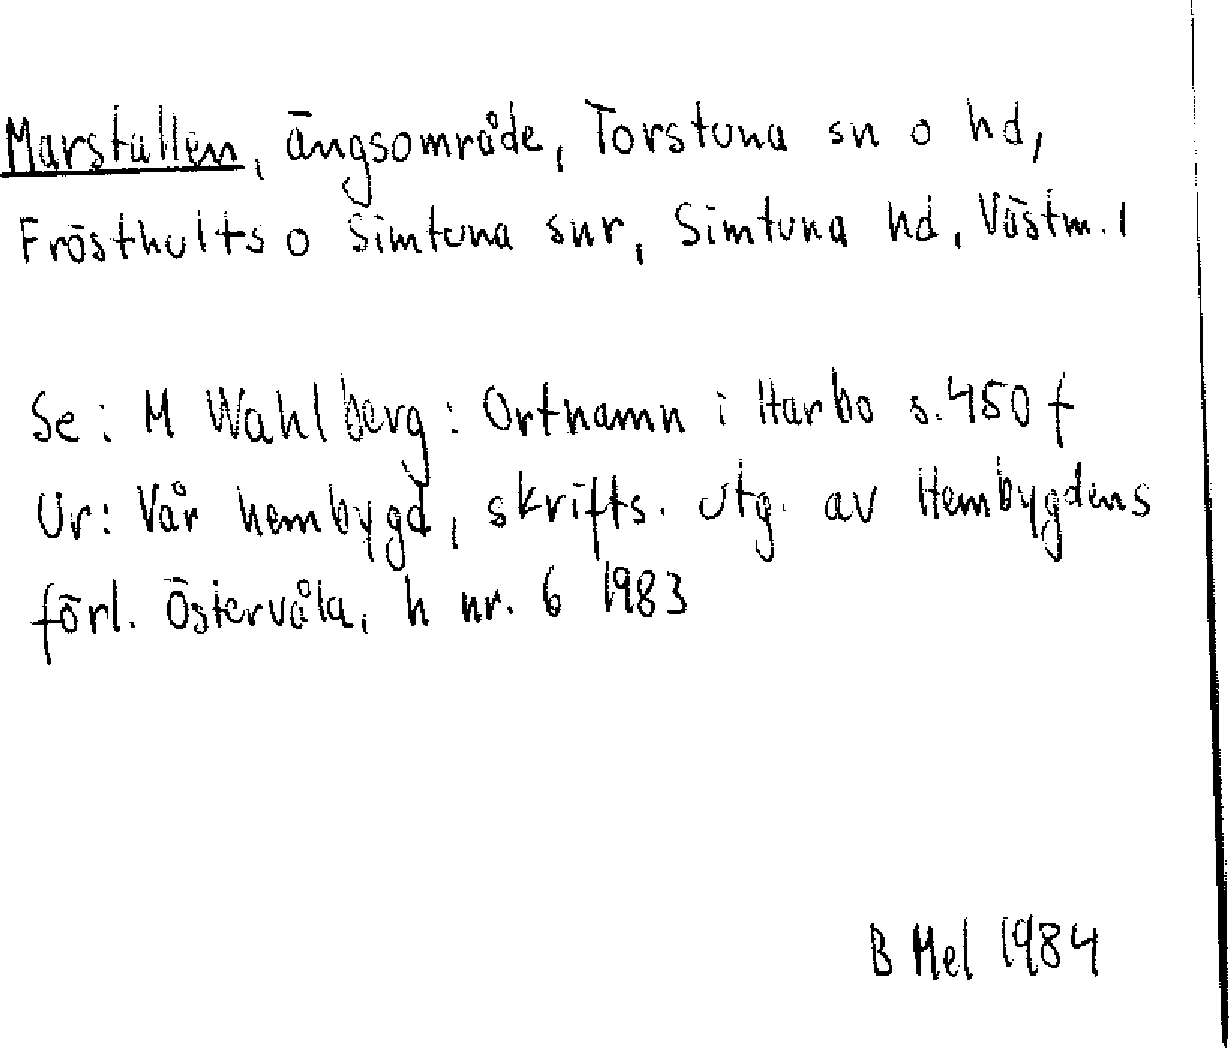 Marstallen, ängsområde, Torstuna sn o hd,
Frösthults o Simtuna snr, Simtuna hd, Västm. l
Se: M Wahlberg: Ortnamn i Harbo s. 450 f
Ur: Vår hembygd, skrifts. utg. av Hembygdens
förl. Östervåla, h nr. 6 1983
B Mel 1984